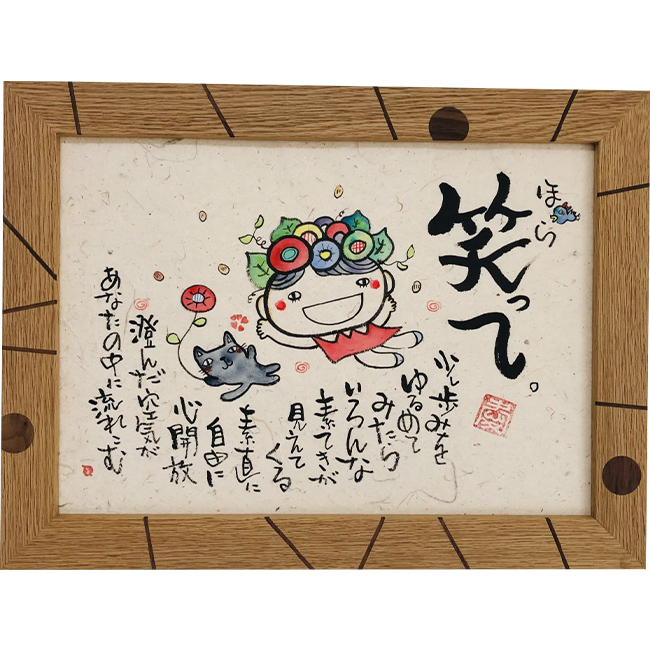 ほら
笑って。
少し歩みを
ゆるめて
みたら
いろんな
素てきが
見えて
くる
素直に
自由に
心開放
澄んだ空気が
あなたの中に流れこむ